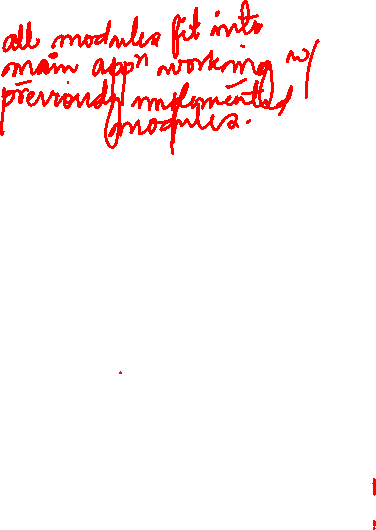 all modules fit into
main appn working w/
previously implemented
modules.